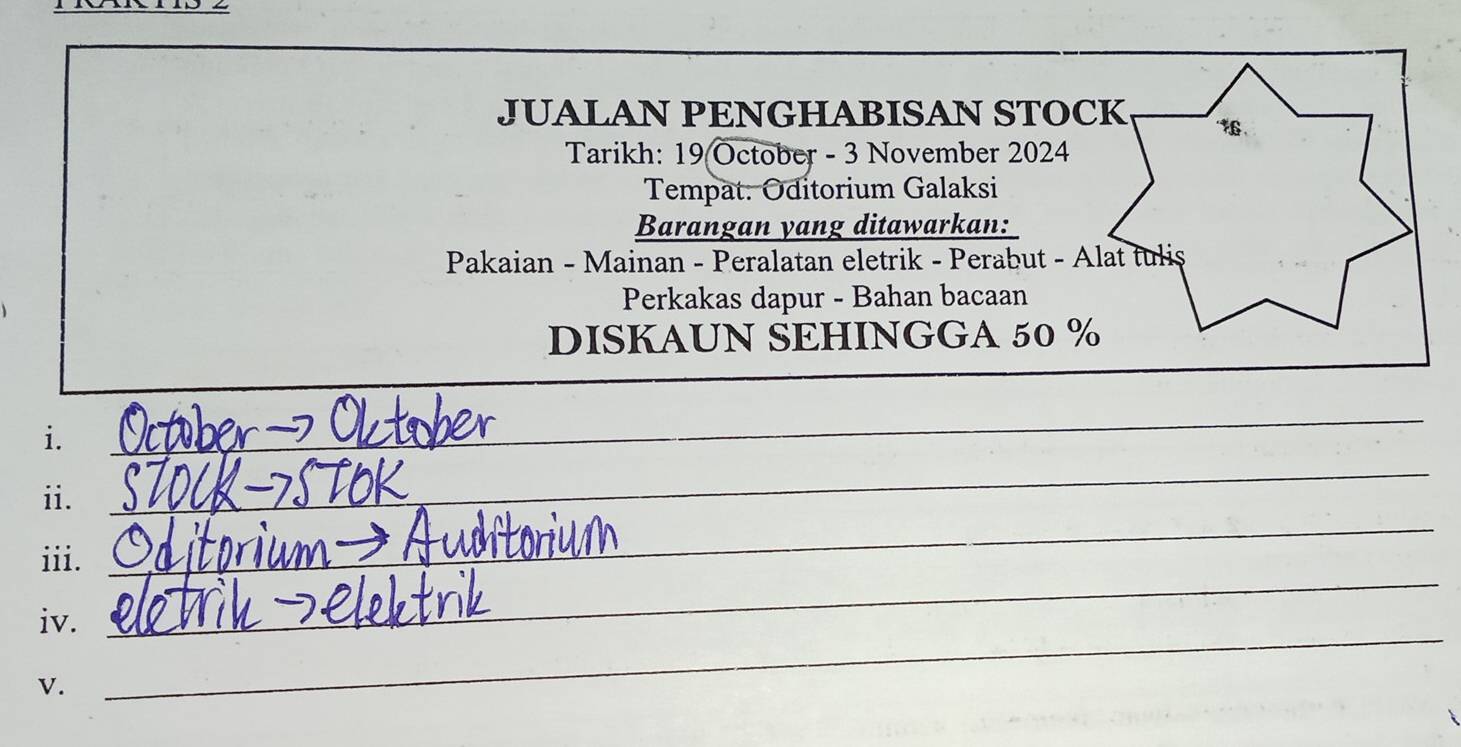 JUALAN PENGHABISAN STOCK
Tarikh: 19 October - 3 November 2024
Tempat: Oditorium Galaksi
Barangan yang ditawarkan:
Pakaian - Mainan - Peralatan eletrik - Perabut - Alat tulis
Perkakas dapur - Bahan bacaan
DISKAUN SEHINGGA 50 %
i. October → Oktober
ii. STOCK → STOK
iii. Oditorium → Auditorium
iv. eletrik → elektrik
v.